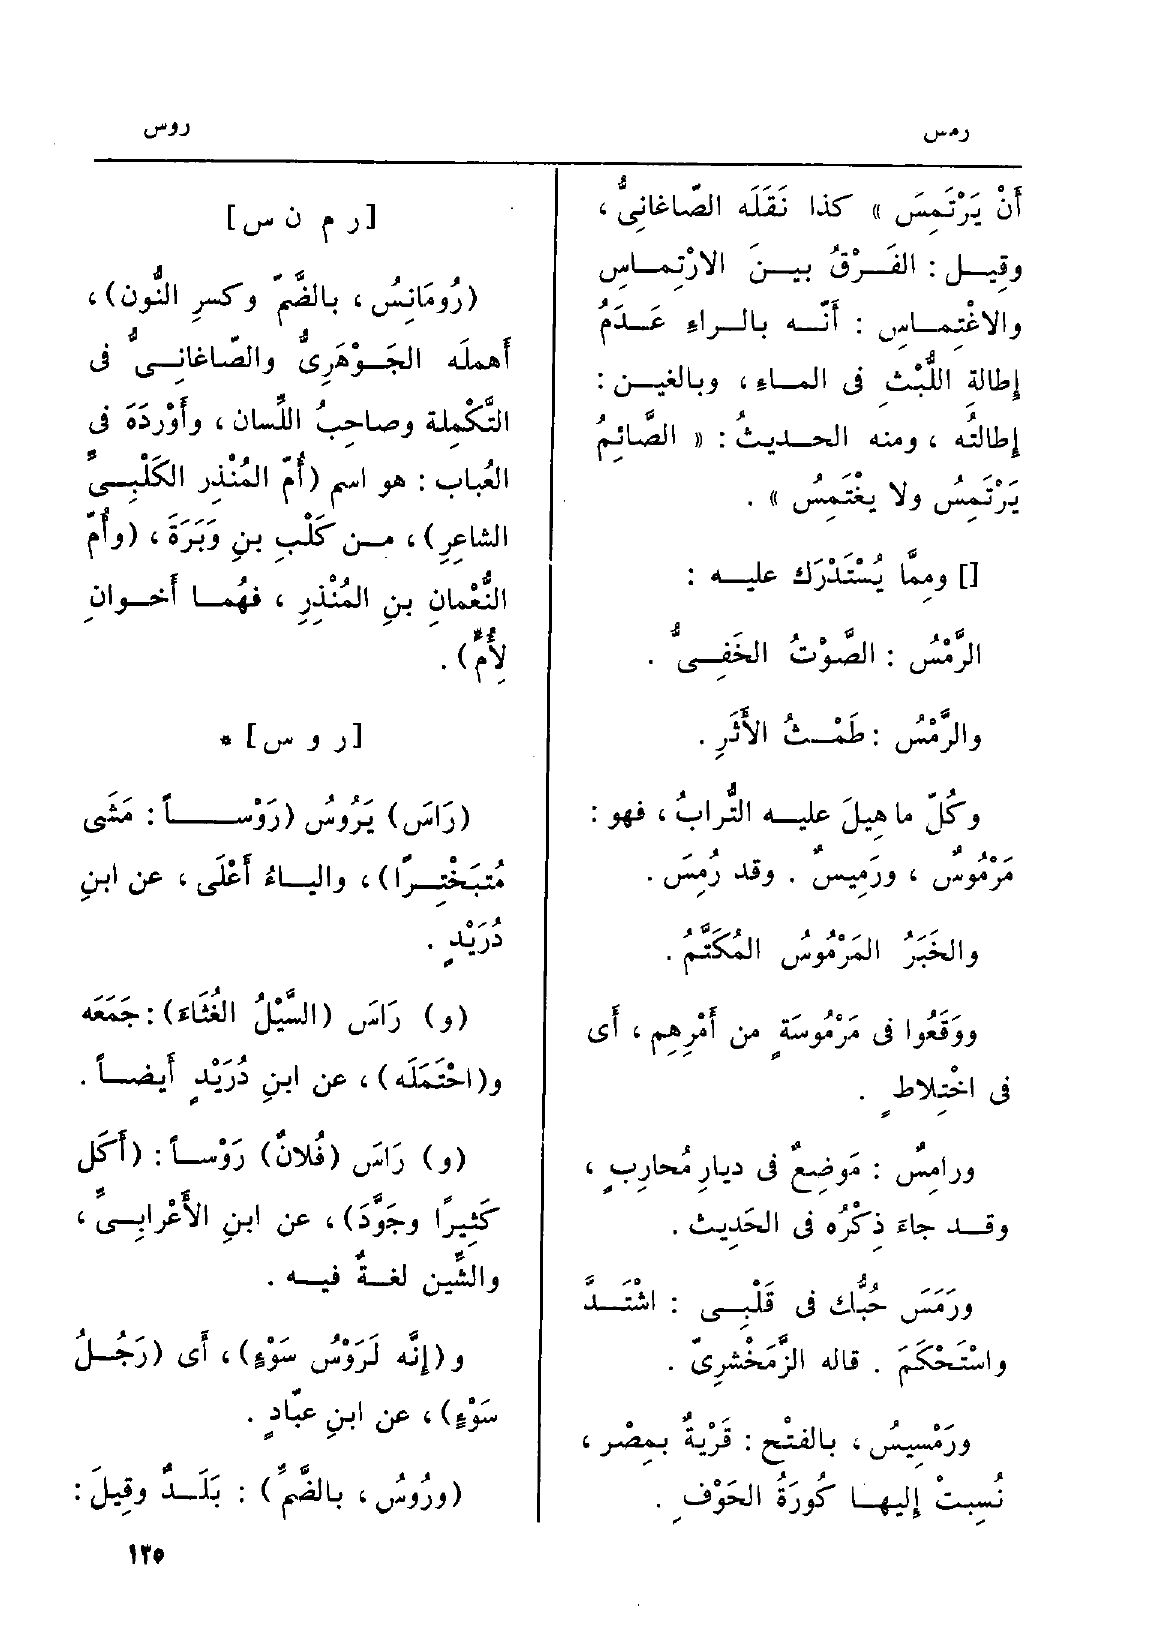 رمس
روس
أَنْ يَرْتَمِسَ » كذا نَقَلَه الصّاغانِىُّ ،
وقِيــل : الفَــرْقُ بيـنَ الارْتِمـاسِ
والاغْتِمـاسِ : أَنّـه بالـراءِ عَـدَمُ
إِطالةِ اللُّبْثِ فى المـاءِ ، وبالغيـن :
إِطالتُه ، ومنه الحـديثُ : « الصَّائمُ
يَرْتَمِسُ ولا يغْتَمِسُ » .
[] ومِمَّا يُسْتَدْرَك عليـه :
الرَّمْسُ : الصَّوْتُ الخَفِــىُّ .
والرَّمْسُ : طَمْـثُ الأَثَرِ .
وكُلّ ما هِيلَ عليـه التُّرابُ ، فهو :
مَرْمُوسٌ ، ورَمِيسٌ . وقد رُمِسَ .
والخَبَرُ المَرْمُوسُ المُكَتَّمُ .
ووَقَعُوا فى مَرْمُوسَةٍ من أَمْرِهِم ، أَى
فى اخْتِلاطٍ .
ورامِسٌ : مَوضِعٌ فى ديارِ مُحارِبٍ ،
وقــد جاءَ ذِكْرُه فى الحَدِيث .
ورَمَسَ حُبُّك فى قَلْبِـى : اشْتَــدَّ
واسْتَحْكَمَ . قاله الزَّمَخْشرِىّ .
ورَمْسِيسُ ، بالفتْح : قَرْيةٌ بمِصْر ،
نُسِبتْ إِليهـا كُورَةُ الحَوْفِ .
[ر م ن س]
(رُومَانِسُ ، بالضَّمّ وكسرِ النُّون) ،
أَهملَه الجَـوْهَرِىُّ والصّاغانِــىُّ فى
التَّكْمِلة وصاحِبُ اللِّسان ، وأَوْرَدَهَ فى
العُباب : هو اسم (أُمّ المُنْذِرِ الكَلْبِــىِّ
الشاعِرِ) ، مــن كَلْبِ بنِ وَبَرَةَ ، (وأُمّ
النُّعْمانِ بنِ المُنْذِرِ ، فهُمـا أَخـوانِ
لأُمٍّ) .
[ر و س] *
(رَاسَ) يَرُوسُ (رَوْســـاً : مَشَى
مُتَبَخْتِـرًا) ، واليـاءُ أَعْلَى ، عن ابنِ
دُرَيْدٍ .
(و) رَاسَ (السَّيْلُ الغُثَاءَ) : جَمَعَه
و(احْتَمَلَه) ، عن ابنِ دُرَيْدٍ أَيضـاً .
(و) رَاسَ (فُلانٌ) رَوْسـاً : (أَكَل
كَثِيرًا وجَوَّدَ) ، عن ابنِ الأَعْرابِـىِّ ،
والشِّين لغــةٌ فيــه .
و(إِنَّه لَرَوْسُ سَوْءٍ) ، أَى (رَجُــلُ
سَوْءٍ) ، عن ابنِ عبّادٍ .
(ورُوسُ ، بالضَّمّ) : بَلَــدٌ وقِيلَ :
١٢٥